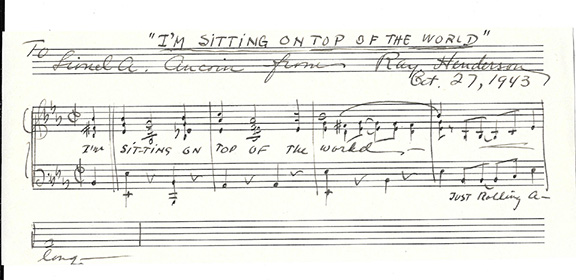 "I'M SITTING ON TOP OF THE WORLD"
To
Lionel A. Aucoin from Ray Henderson
Oct. 27, 1943
I'm SIT-TING ON TOP OF THE world —
JUST Rolling A-
long —